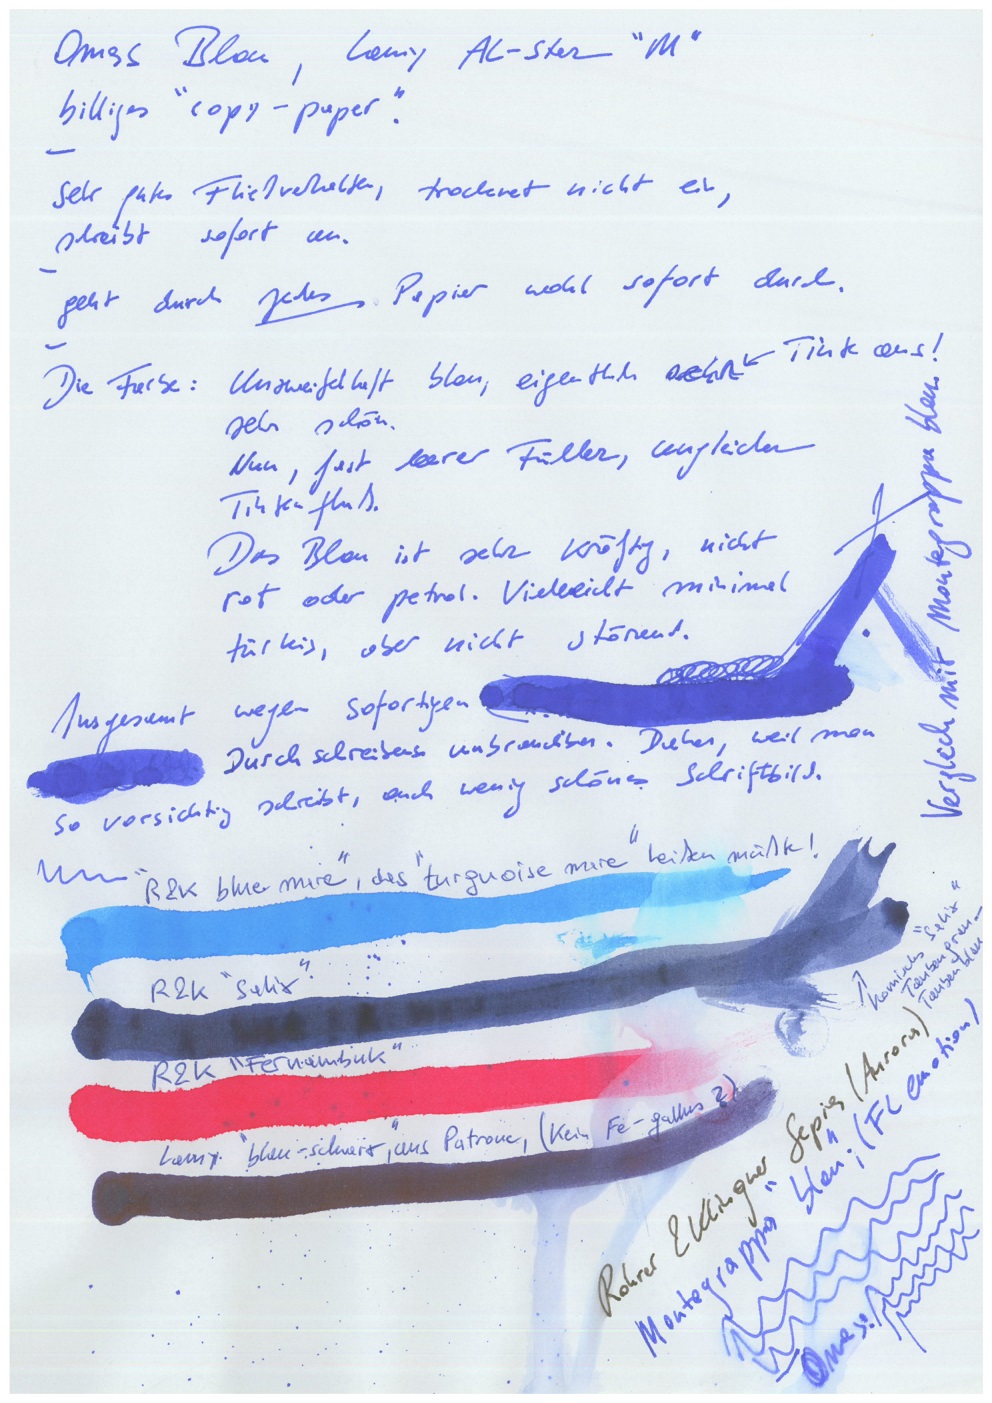 Omas Blau, Lamy AL-Star "M"
billiges "copy-paper".
Sehr gutes Fließverhalten, trocknet nicht ein,
schreibt sofort an.
geht durch jedes Papier wohl sofort durch.
Die Farbe: Unzweifelhaft blau, eigentlich Tinte aus!
sehr schön.
Nun, fast leerer Füller, ungleicher
Tintenfluß.
Das Blau ist sehr kräftig, nicht
rot oder petrol. Vielleicht minimal
türkis, aber nicht störend.
Insgesamt wegen sofortigen
Durchschreibens unbrauchbar. Daher, weil man
so vorsichtig schreibt, auch wenig schönes Schriftbild.
Vergleich mit Montegrappa blau.
"R&K blue mare", das "turquoise mare" heißen müßte!
R&K "Salix".
komisches "Salix"
Taubengrau-
Taubenblau
R&K "Fernambuk"
Lamy "blau-schwarz", aus Patrone, (kein Fe-gallus?)
Rohrer & Klingner Sepia (Aurora)
Montegrappa "blau"; (FL emotion)
Omas!